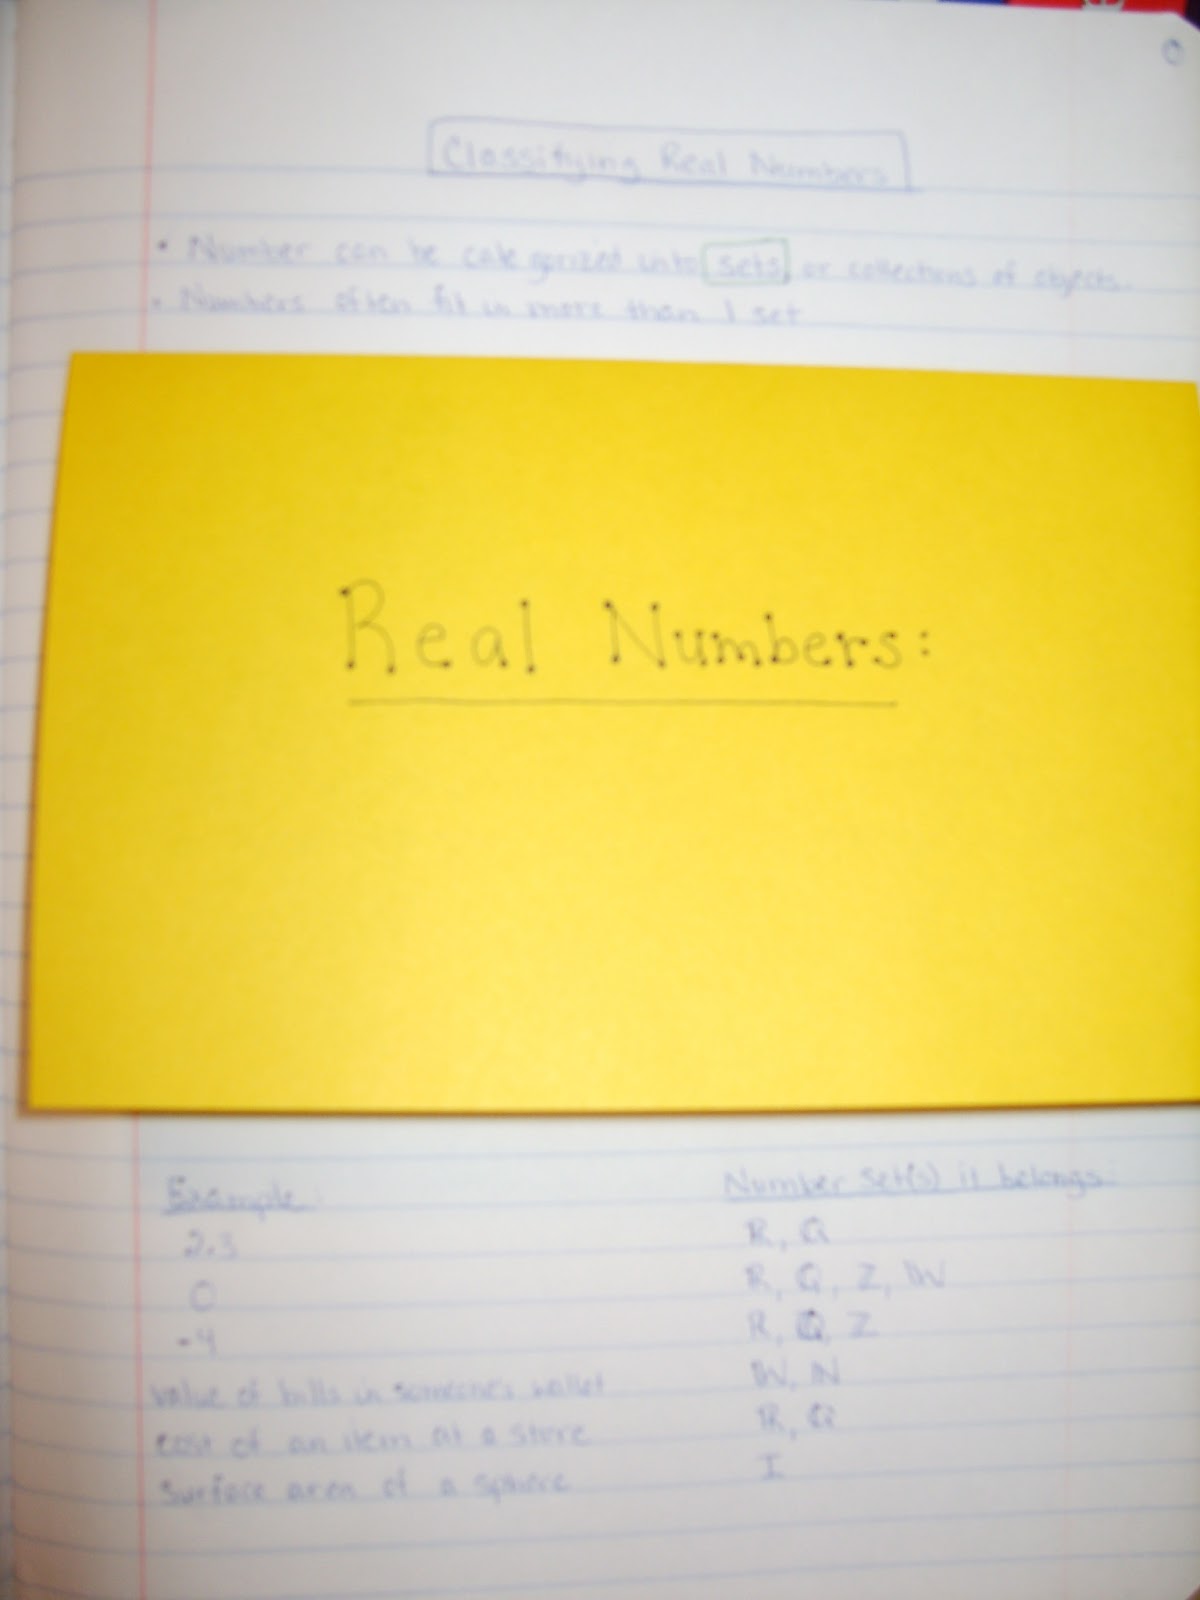 Classifying Real Numbers
• Number can be categorized into sets or collections of objects.
• Numbers often fit in more than 1 set
Real Numbers:
Example: Number set(s) it belongs:
2.3 ℝ, ℚ
0 ℝ, ℚ, ℤ, 𝕎
-4 ℝ, ℚ, ℤ
value of bills in someone's wallet 𝕎, ℕ
cost of an item at a store ℝ, ℚ
surface area of a sphere I